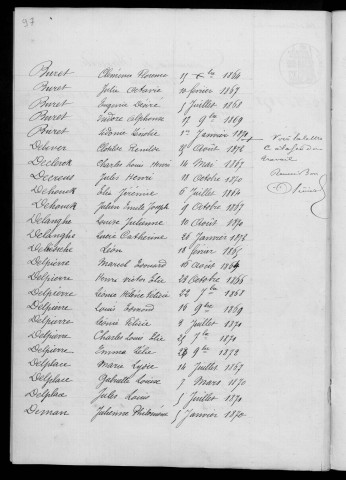 97
Buret Clémence Florence 15 Xbre 1866
Buret Julie Octavie 10 février 1867
Buret Eugénie Désirée 5 Juillet 1868
Buret Isidore Alphonse 17 9bre 1869
Buret 1er Janvier 1870
Deliver Clotilde 17 Août 1872
Declerck Charles Louis Henri 14 Mai 1867
Decreus Jules Henri 18 Octobre 1870
Dehouck Elie Jérémie 6 Juillet 1864
Dehouck Julien Emile Joseph 9 Octobre 1867
Delanghe Louise Julienne 10 Août 1870
Delanghe Lucie Catherine 26 Janvier 1872
Léon 18 février 1865
Delpierre Edouard 16 Août 1864
Delpierre Henri Victor Elie 28 Octobre 1866
Delpierre Léonie Hélène Félicie 22 7bre 1868
Delpierre Louis Edouard 16 9bre 1869
Delpierre Louis Félicie 3 Juillet 1870
Delpierre Charles Louis Elie 25 7bre 1870
Delpierre Emma Zélie 26 9bre 1872
Delplace Marie Lydie 14 Juillet 1867
Delplace Gabrielle Louise 7 Mars 1870
Delplace Jules Louis 5 Juillet 1870
Deman Julienne Philomène 5 Janvier 1870
travail